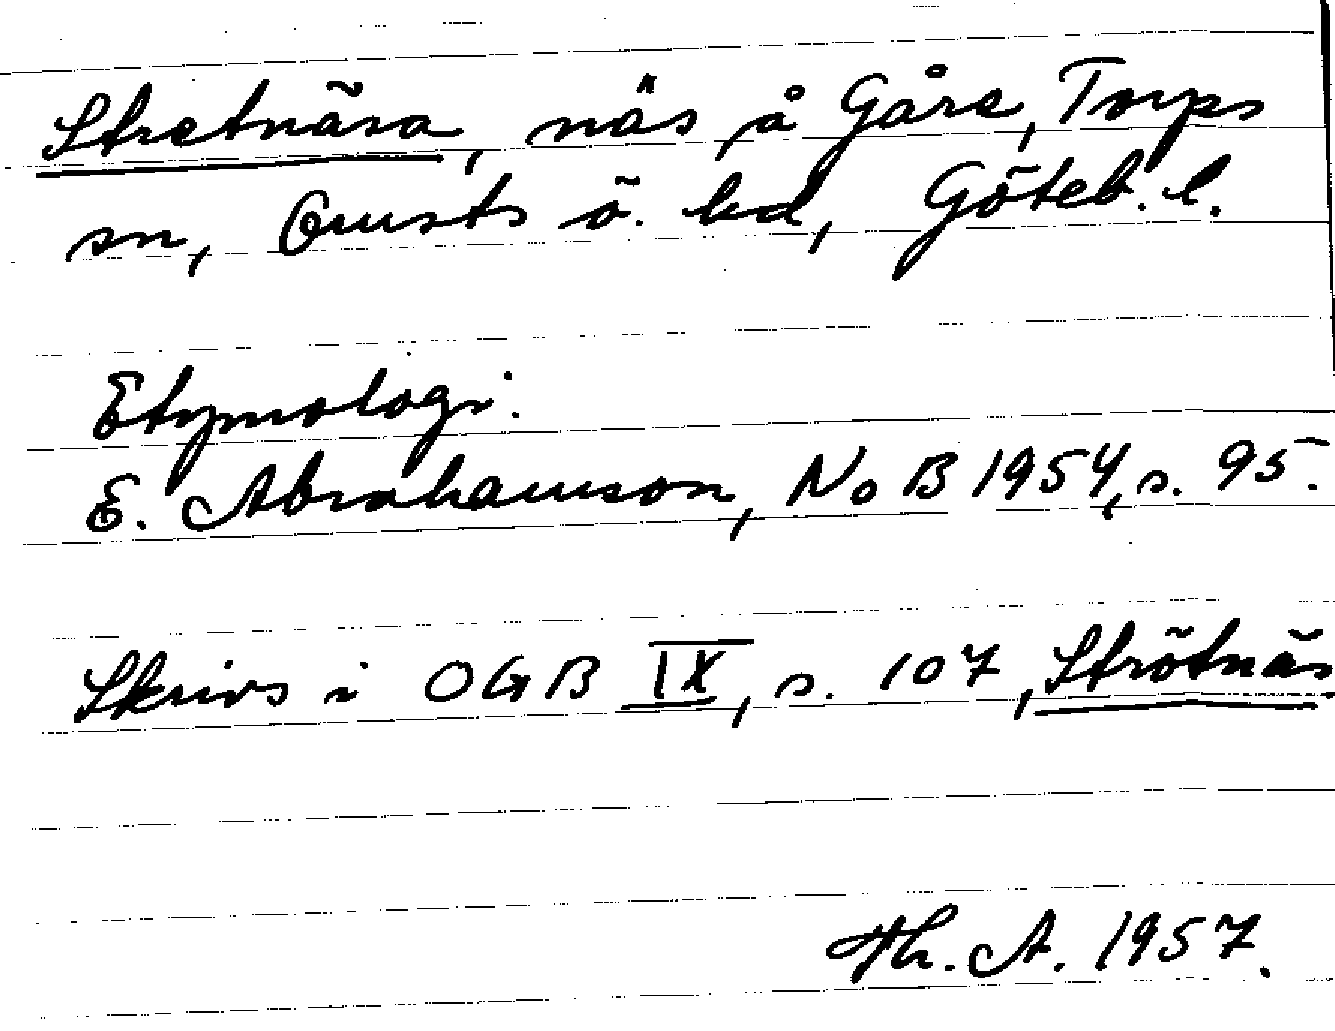 Stretnäsa, näs å Gåre, Torps
sn, Orusts ö. hd, Göteb. l.
Etymologi:
E. Abrahamson, NoB 1954, s. 95.
Skrivs i OGB IX, s. 107, Strötnäs
Th. A. 1957.